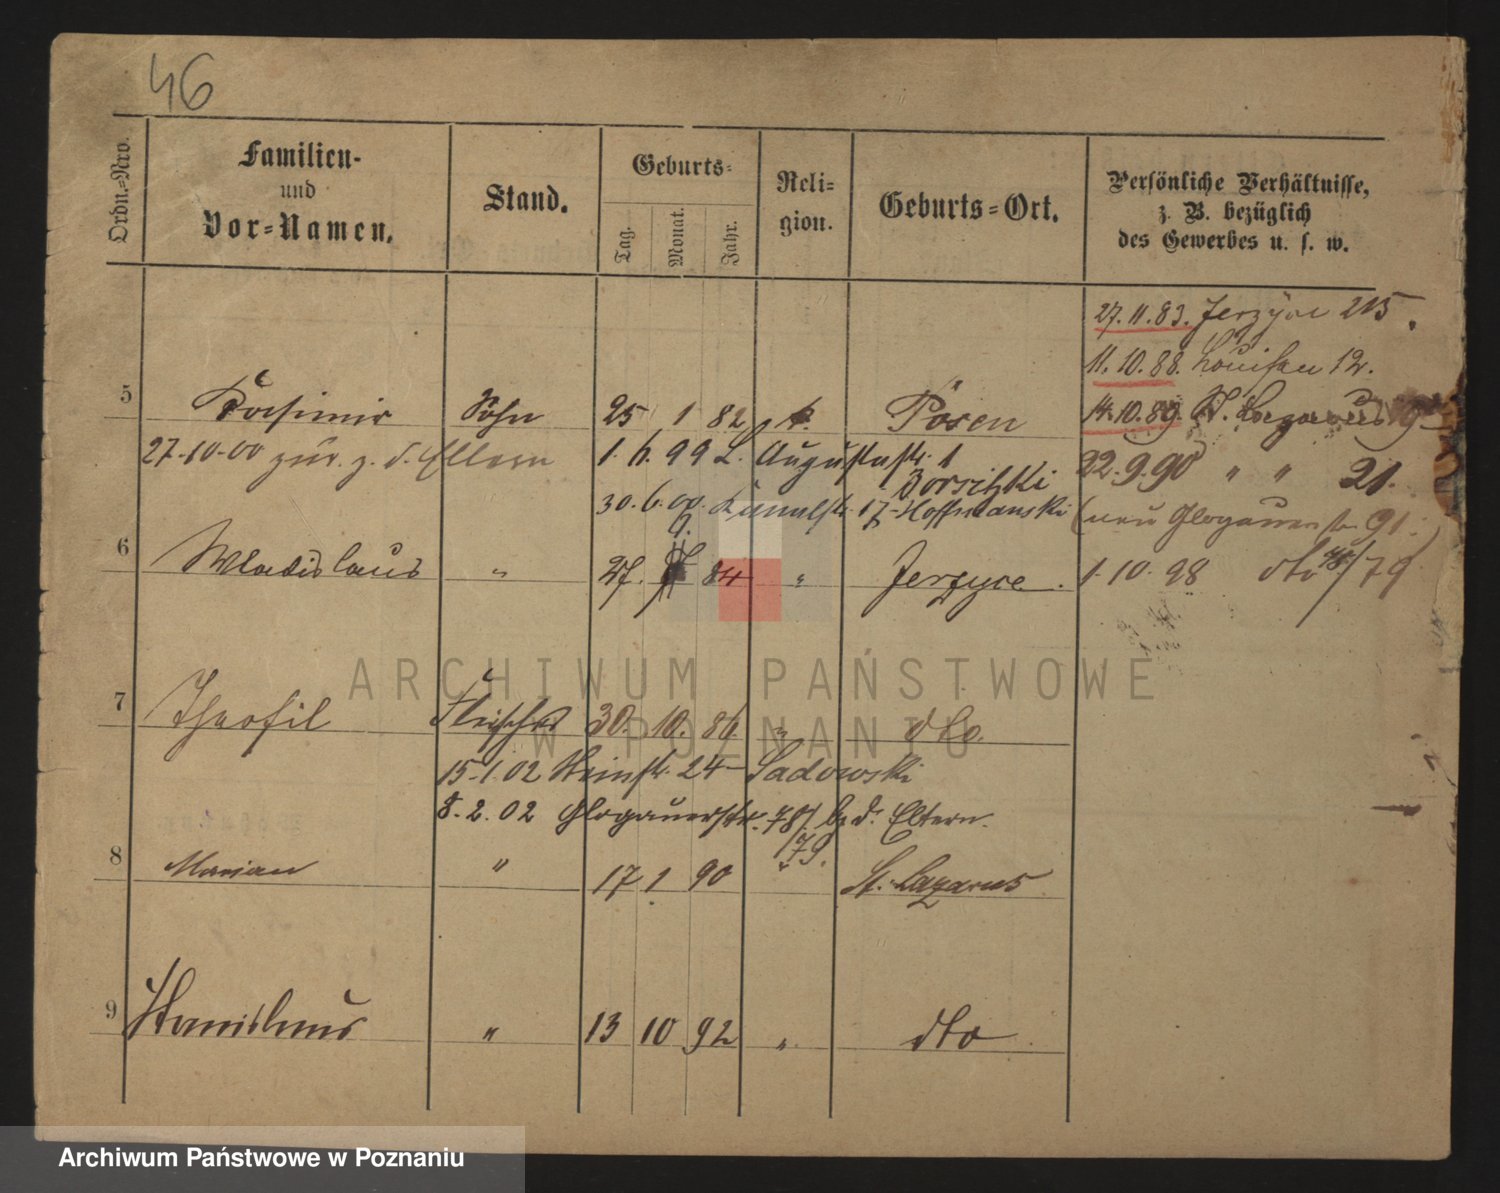 46
Ordn.-Nro.
Familien-
und
Vor-Namen.
Stand.
Geburts-
Tag.
Monat.
Jahr.
Reli-
gion.
Geburts-Ort.
Persönliche Verhältnisse,
z. B. bezüglich
des Gewerbes u. s. w.
27.11.83. Jerzyce 215.
11.10.88. Louisen 12.
14.10.89. St. Lazarus 9
5 Casimir Sohn 25 1 82 k. Posen
27-10-00 zur. z. d. Eltern 1. 99 L. Augustastr. 1
22.9.90 " " 21.
Zorsitzki
30.6.00. Kanalstr. 17 - Hoffmanski
(neu Glogauerstr 91.)
6 Wladislaus " 27. 9. 84 " Jerzyce.
1.10.98 dto 78/79
7 Theofil Fleischer 30. 10. 86 " dto.
15.1.02 Kleinstr. 24 - Sadowski
8.2.02 Glogauerstr. 78/79. b. d. Eltern.
8 Marian " 17 1 90 St. Lazarus
9 Stanislaus " 13 10 92 " dto
ARCHIWUM PAŃSTWOWE
W POZNANIU
Archiwum Państwowe w Poznaniu